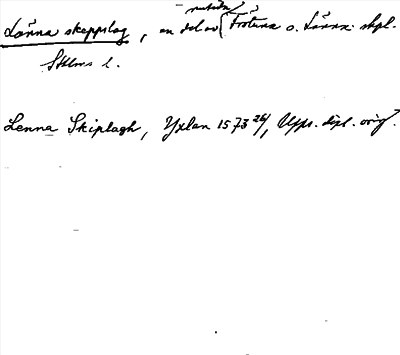 Länna skeppslag, en del av nutida Frötuna o. Länna skpl.
Sthlms l.
Lenna Skiplagh, Yxlan 1573 26/, Upps. dipl. orig.